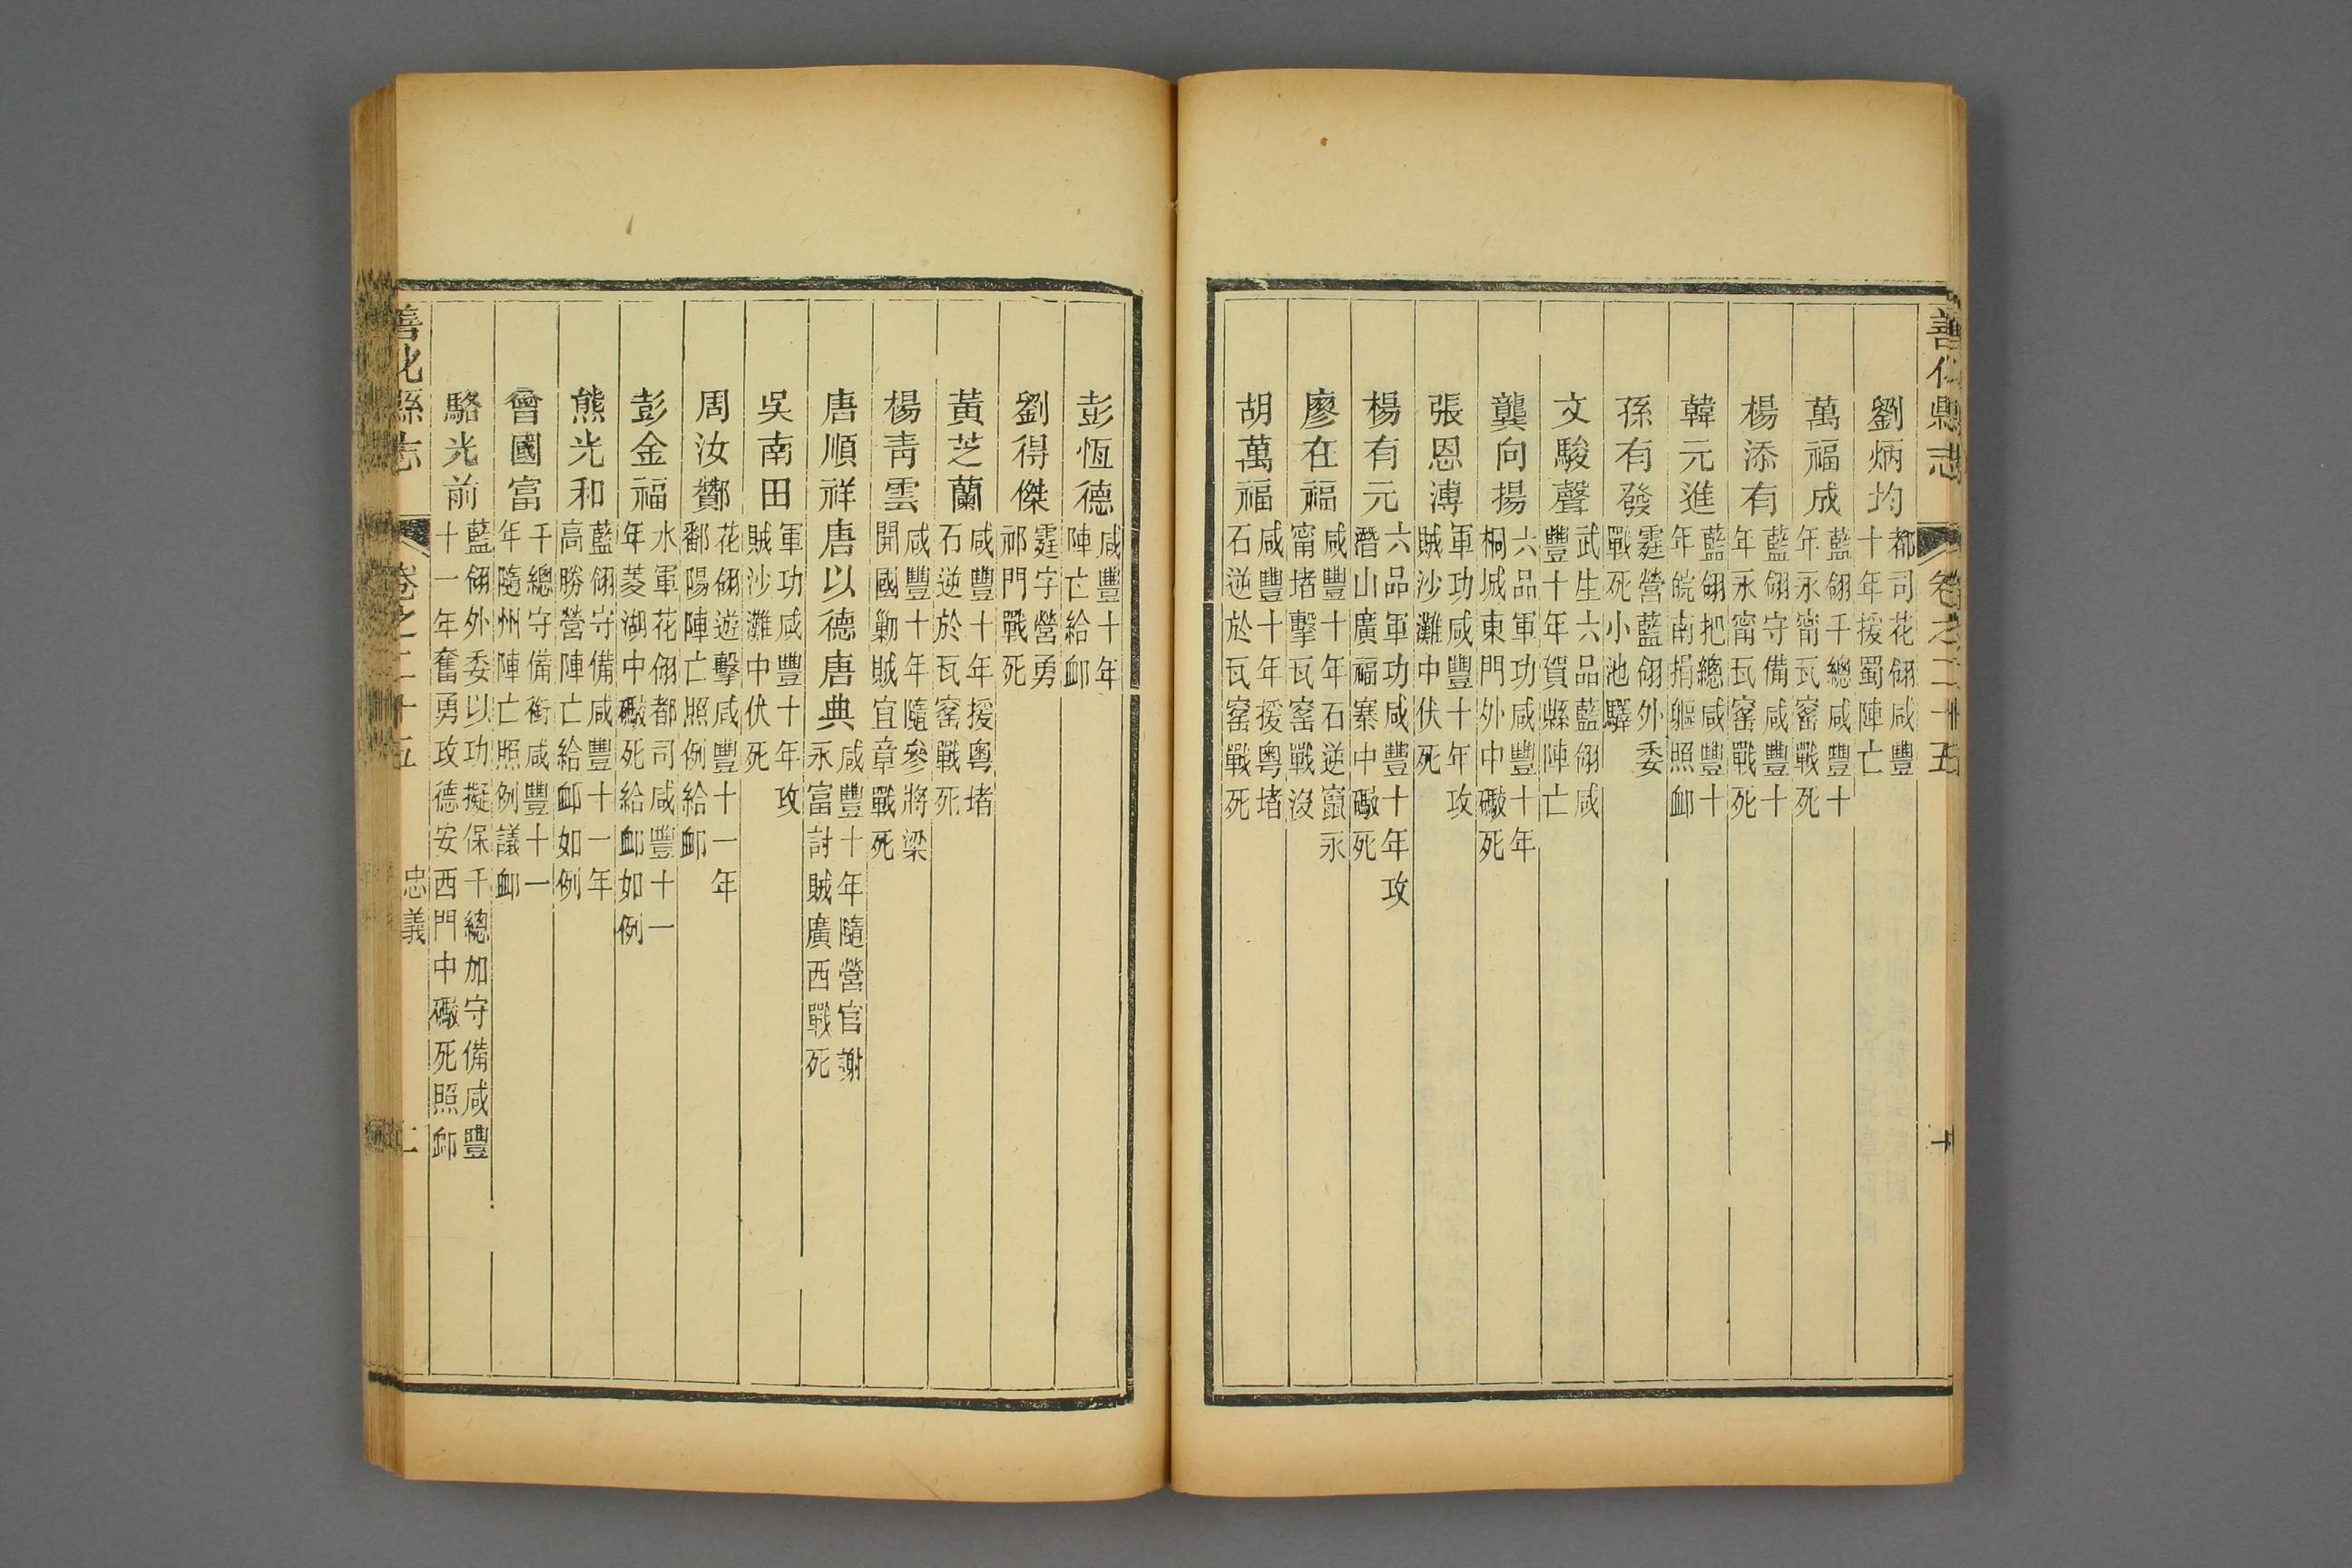 善化縣志 卷之二十五 十
劉炳均 都司花翎咸豐十年援蜀陣亡
萬福成 藍翎千總咸豐十年永甯瓦窰戰死
楊添有 藍翎守備咸豐十年永甯瓦窰戰死
韓元進 藍翎把總咸豐十年皖南捐軀照卹
孫有發 霆營藍翎外委戰死小池驛
文駿聲 武生六品藍翎咸豐十年賀縣陣亡
龔向揚 六品軍功咸豐十年桐城東門外中礮死
張恩溥 軍功咸豐十年攻賊沙灘中伏死
楊有元 六品軍功咸豐十年攻潛山廣福寨中礮死
廖在福 咸豐十年石逆竄永甯堵擊瓦窰戰沒
胡萬福 咸豐十年援粵堵石逆於瓦窰戰死
彭恆德 咸豐十年陣亡給卹
劉得傑 霆字營勇祁門戰死
黃芝蘭 咸豐十年援粵堵石逆於瓦窰戰死
楊青雲 咸豐十年隨參將梁開國勦賊宜章戰死
唐順祥唐以德唐典 咸豐十年隨營官謝永富討賊廣西戰死
吳南田 軍功咸豐十年攻賊沙灘中伏死
周汝鄼 花翎遊擊咸豐十一年鄱陽陣亡照例給卹
彭金福 水軍花翎都司咸豐十一年菱湖中礮死給卹如例
熊光和 藍翎守備咸豐十一年高勝營陣亡給卹如例
曾國富 千總守備銜咸豐十一年隨州陣亡照例議卹
駱光前 藍翎外委以功擬保千總加守備咸豐十一年奮勇攻德安西門中礮死照卹
善化縣志 卷之二十五 忠義